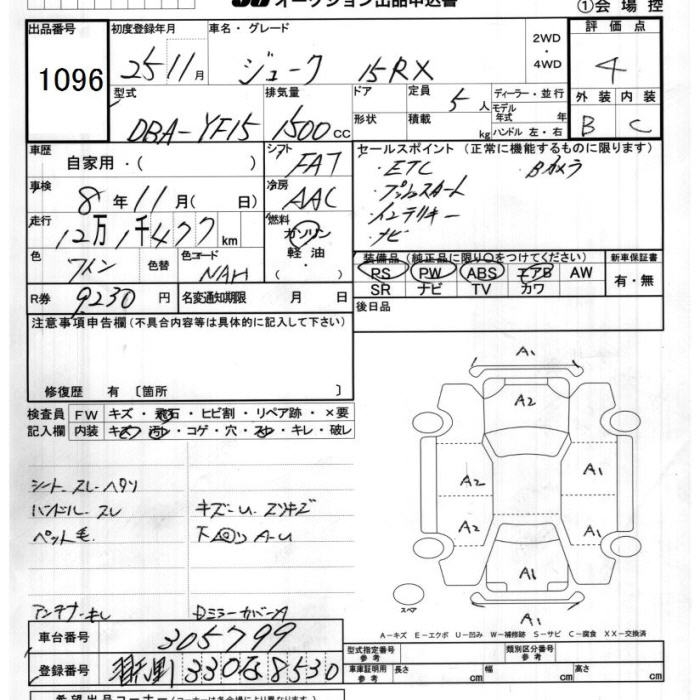 オークション出品申込書 ①会場控
出品番号 初度登録年月 車名・グレード 2WD・4WD 評価点
1096 25 11月 ジューク 15RX 4
型式 排気量 ドア 定員 5人 ディーラー・並行 外装 内装
DBA-YF15 1500cc 形状 積載 kg モデル年式 年 ハンドル 左・右 B C
車歴 自家用・( ) シフト FAT セールスポイント (正常に機能するものに限ります)
・ETC Bカメラ
・プッシュスタート
・インテリキー
・ナビ
車検 8年11月( 日) 冷房 AAC
走行 12万1千477km 燃料 ガソリン・軽油・
色 ワイン 色替 色コード NAH
装備品 (純正品に限り○をつけてください) 新車保証書
PS PW ABS エアB AW 有・無
SR ナビ TV カワ
R券 9230円 名変通知期限 月 日 後日品
注意事項申告欄(不具合内容等は具体的に記入して下さい)
修復歴 有 〔箇所 〕
検査員 FW キズ・飛石・ヒビ割・リペア跡・×要
記入欄 内装 キズ・汚れ・コゲ・穴・スレ・キレ・破レ
シート スレ・ヘタリ
ハンドル スレ キズ・U スリキズ
ペット毛 下回りA-U
アンテナ キレ DミラーカバーA
A1
A2
A2 A1
A2 A1
A1
A1
スペア
A-キズ E-エクボ U-凹み W-補修跡 S-サビ C-腐食 XX-交換済
車台番号 305799
登録番号 330 8530
型式指定番号 参考 類別区分番号 参考
車庫証明用 参考 長さ cm 幅 cm 高さ cm
希望出品コーナー(コーナーは各会場により異なります)